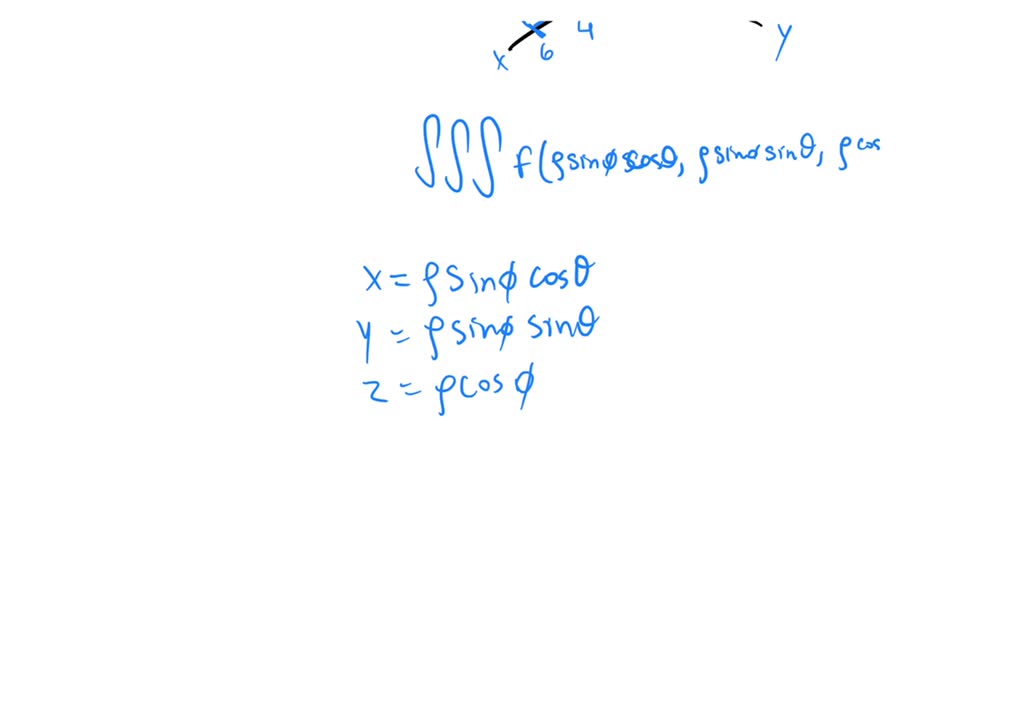 4
y
x
6
∫∫∫ f(ρsinφcosθ, ρsinφsinθ, ρcos
x = ρsinφ cosθ
y = ρsinφ sinθ
z = ρcosφ